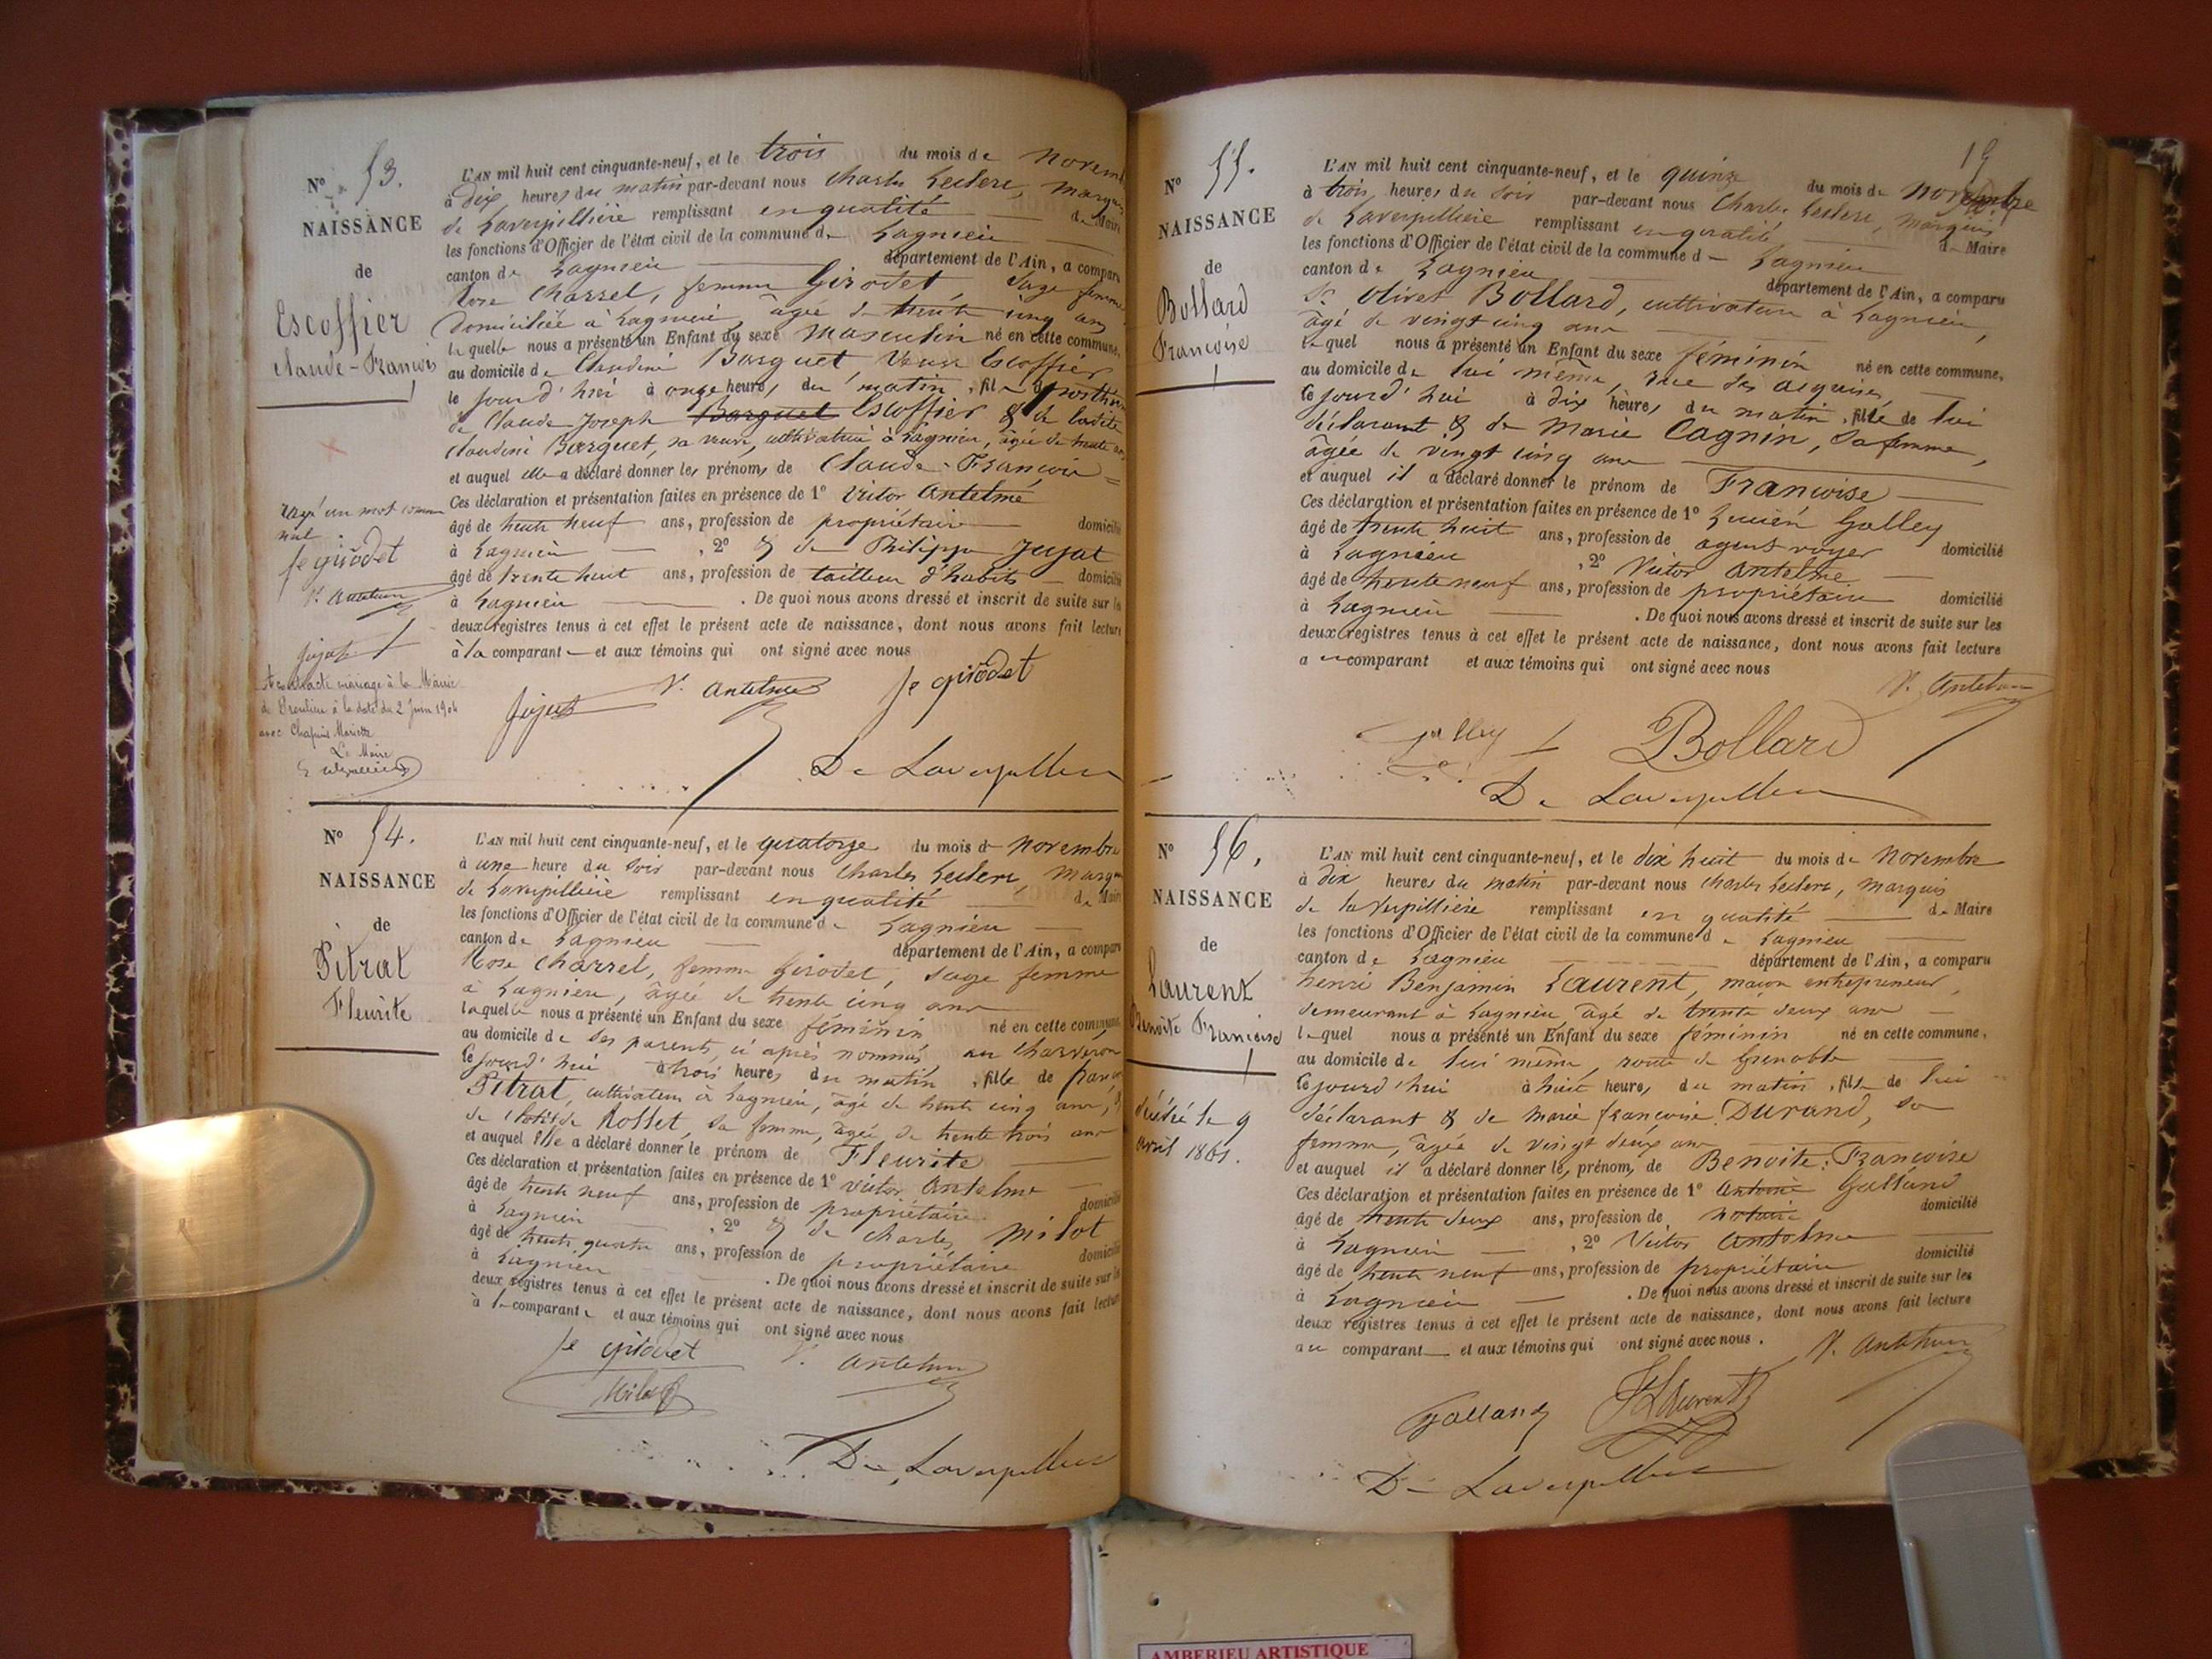 N° 53.
NAISSANCE
de
Escoffier
Claude-François
Rayé un mot comme
nul.
fe girodet
V. Antelme
Jujat
à la Mairie
à la date du 2 Juin 1904
avec Chapuis Mariette
Le Maire
L'AN mil huit cent cinquante-neuf, et le trois du mois de Novem
à dix heures du matin par-devant nous Charles Leclerc, Marquis
de Laverpillière remplissant en qualité de Maire
les fonctions d'Officier de l'état civil de la commune de Lagnieu
canton de Lagnieu département de l'Ain, a comparu
Rose Charrel, femme Girodet, Sage femme
domiciliée à Lagnieu, âgée de trente cinq ans
laquelle nous a présenté un Enfant du sexe Masculin né en cette commune,
au domicile de Claudine Barquet, Veuve Escoffier
le jour d'hier à onze heures du matin, fils posthume
de Claude Joseph Barquet Escoffier & de ladite
Claudine Barquet, sa veuve, cultivatrice à Lagnieu, âgée de trente ans
et auquel elle a déclaré donner les prénoms de Claude-François
Ces déclaration et présentation faites en présence de 1° Victor Antelme
âgé de trente neuf ans, profession de propriétaire domicilié
à Lagnieu, 2° & de Philippe Jujat
âgé de trente huit ans, profession de tailleur d'habits domicilié
à Lagnieu. De quoi nous avons dressé et inscrit de suite sur les
deux registres tenus à cet effet le présent acte de naissance, dont nous avons fait lecture
à la comparante et aux témoins qui ont signé avec nous
Jujat V. Antelme fe girodet
De Laverpillière
N° 54.
NAISSANCE
de
Pitrat
Fleurite
L'AN mil huit cent cinquante-neuf, et le quatorze du mois de Novembre
à une heure du soir par-devant nous Charles Leclerc, Marquis
de Laverpillière remplissant en qualité de Maire
les fonctions d'Officier de l'état civil de la commune de Lagnieu
canton de Lagnieu département de l'Ain, a comparu
Rose Charrel, femme Girodet, sage femme
à Lagnieu, âgée de trente cinq ans
laquelle nous a présenté un Enfant du sexe féminin né en cette commune,
au domicile de ses parents, ci après nommés, au Charveron
le jourd'hui à trois heures du matin, fille de
Pitrat, cultivateur à Lagnieu, âgé de trente cinq ans, &
de Clotilde Rosset, sa femme, âgée de trente trois ans
et auquel elle a déclaré donner le prénom de Fleurite
Ces déclaration et présentation faites en présence de 1° Victor Antelme
âgé de trente neuf ans, profession de propriétaire domicilié
à Lagnieu, 2° & de Charles Milot
âgé de trente quatre ans, profession de propriétaire domicilié
à Lagnieu. De quoi nous avons dressé et inscrit de suite sur les
deux registres tenus à cet effet le présent acte de naissance, dont nous avons fait lecture
à la comparante et aux témoins qui ont signé avec nous
fe girodet V. Antelme
Milot
De Laverpillière
19
N° 55.
NAISSANCE
de
Bollard
Françoise
L'AN mil huit cent cinquante-neuf, et le quinze du mois de Novembre
à trois heures du soir par-devant nous Charles Leclerc, Marquis
de Laverpillière remplissant en qualité de Maire
les fonctions d'Officier de l'état civil de la commune de Lagnieu
canton de Lagnieu département de l'Ain, a comparu
Sr. Olivet Bollard, cultivateur à Lagnieu,
âgé de vingt cinq ans
lequel nous a présenté un Enfant du sexe féminin né en cette commune,
au domicile de lui même, rue des
le jourd'hui à dix heures du matin, fille de lui
déclarant & de Marie Cagnin, sa femme,
âgée de vingt cinq ans
et auquel il a déclaré donner le prénom de Françoise
Ces déclaration et présentation faites en présence de 1° Lucien Galley
âgé de trente huit ans, profession de agent voyer domicilié
à Lagnieu, 2° Victor Antelme
âgé de trente neuf ans, profession de propriétaire domicilié
à Lagnieu. De quoi nous avons dressé et inscrit de suite sur les
deux registres tenus à cet effet le présent acte de naissance, dont nous avons fait lecture
au comparant et aux témoins qui ont signé avec nous
V. Antelme
Galley Bollard
De Laverpillière
N° 56.
NAISSANCE
de
Laurent
Benoite Françoise
décédée le 9
avril 1861.
L'AN mil huit cent cinquante-neuf, et le dix huit du mois de Novembre
à dix heures du matin par-devant nous Charles Leclerc, Marquis
de la Verpillière remplissant en qualité de Maire
les fonctions d'Officier de l'état civil de la commune de Lagnieu
canton de Lagnieu département de l'Ain, a comparu
Henri Benjamin Laurent, maçon entrepreneur,
demeurant à Lagnieu, âgé de trente deux ans
lequel nous a présenté un Enfant du sexe féminin né en cette commune,
au domicile de lui même, route de Grenoble
le jourd'hui à huit heures du matin, fille de lui
déclarant & de Marie Françoise Durand, sa
femme, âgée de vingt deux ans
et auquel il a déclaré donner les prénoms de Benoite-Françoise
Ces déclaration et présentation faites en présence de 1° Antoine Galland
âgé de trente deux ans, profession de notaire domicilié
à Lagnieu, 2° Victor Antelme
âgé de trente neuf ans, profession de propriétaire domicilié
à Lagnieu. De quoi nous avons dressé et inscrit de suite sur les
deux registres tenus à cet effet le présent acte de naissance, dont nous avons fait lecture
au comparant et aux témoins qui ont signé avec nous.
V. Antelme
Galland Laurent
De Laverpillière
AMBERIEU ARTISTIQUE